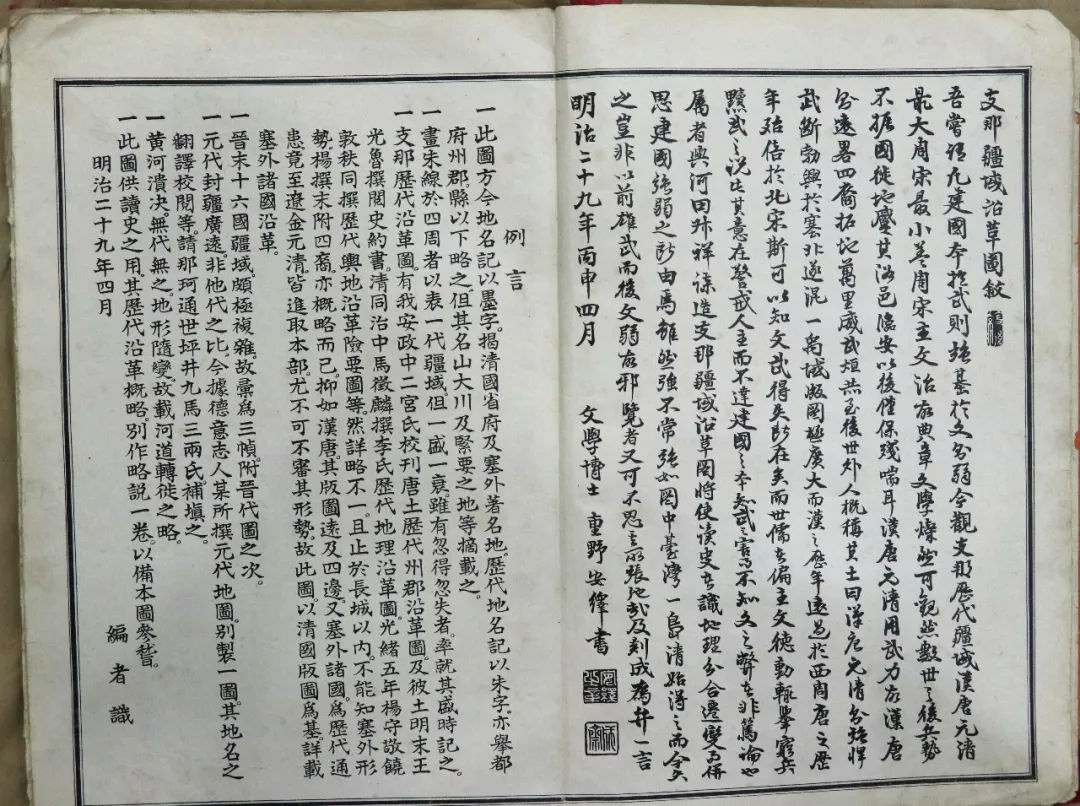 支那疆域沿革圖敘
吾嘗謂凡建國本於武則強基於文則弱今觀支那歷代疆域漢唐元清
最大周宋最小蓋周宋主文治故典章文學燦然可觀然數世之後兵勢
不振國徒地蹙其洛邑臨安以後僅保殘喘耳漢唐元清用武力故漢唐
分遠畧四裔拓地萬里威武烜然至後世外人概稱其土曰漢唐元清勁悍
武斷勃興於塞北遂混一禹域版圖極廣大而漢之歷年遠過於西周唐之歷
年殆倍於北宋斯可以知文武得失所在矣而世儒偏主文德動輒舉窮兵
黷武之說比其意在警戒人主而不達建國之本知武之害而不知文之弊者非篤論也
屬者興河田邨祥課造支那疆域沿革圖將使讀史者識地理分合遷變而併
思建國強弱之所由焉雖然強不常強如圖中臺灣一島清始得之而今失
之豈非以前雄武而後文弱故邪覽者又可不思之張弛哉及刻成爲弁一言
明治二十九年丙申四月
文學博士 重野安繹書
例言
一此圖方今地名記以墨字揭清國省府及塞外著名地歷代地名記以朱字亦舉都
府州郡縣以下略之但其名山大川及緊要之地等摘載之。
一畫朱線於四周者以表一代疆域但一盛一衰雖有忽得忽失者率就其盛時記之。
一支那歷代沿革圖有我安政中二宮氏校刊唐土歷代州郡沿革圖及彼土明末王
光魯撰閱史約書清同治中馬徵麟撰李氏歷代地理沿革圖光緒五年楊守敬饒
敦秩同撰歷代輿地沿革險要圖等然詳略不一且止於長城以內不能知塞外形
勢楊撰末附四裔亦概略而已抑如漢唐其版圖遠及四邊又塞外諸國爲歷代通
患竟至遼金元清皆進取本部尤不可不審其形勢故此圖以清國版圖爲基詳載
塞外諸國沿革。
一晉末十六國疆域頗極複雜故彙爲三幀附晉代圖之次。
一元代封疆廣遠非他代之比今據德意志人某所撰元代地圖別製一圖其地名之
翻譯校閱等請那珂通世坪井九馬三兩氏補塡之。
一黃河潰決無代無之地形隨變故載河道轉徙之略。
一此圖供讀史之用其歷代沿革概略別作略說一卷以備本圖參督。
明治二十九年四月
編者識